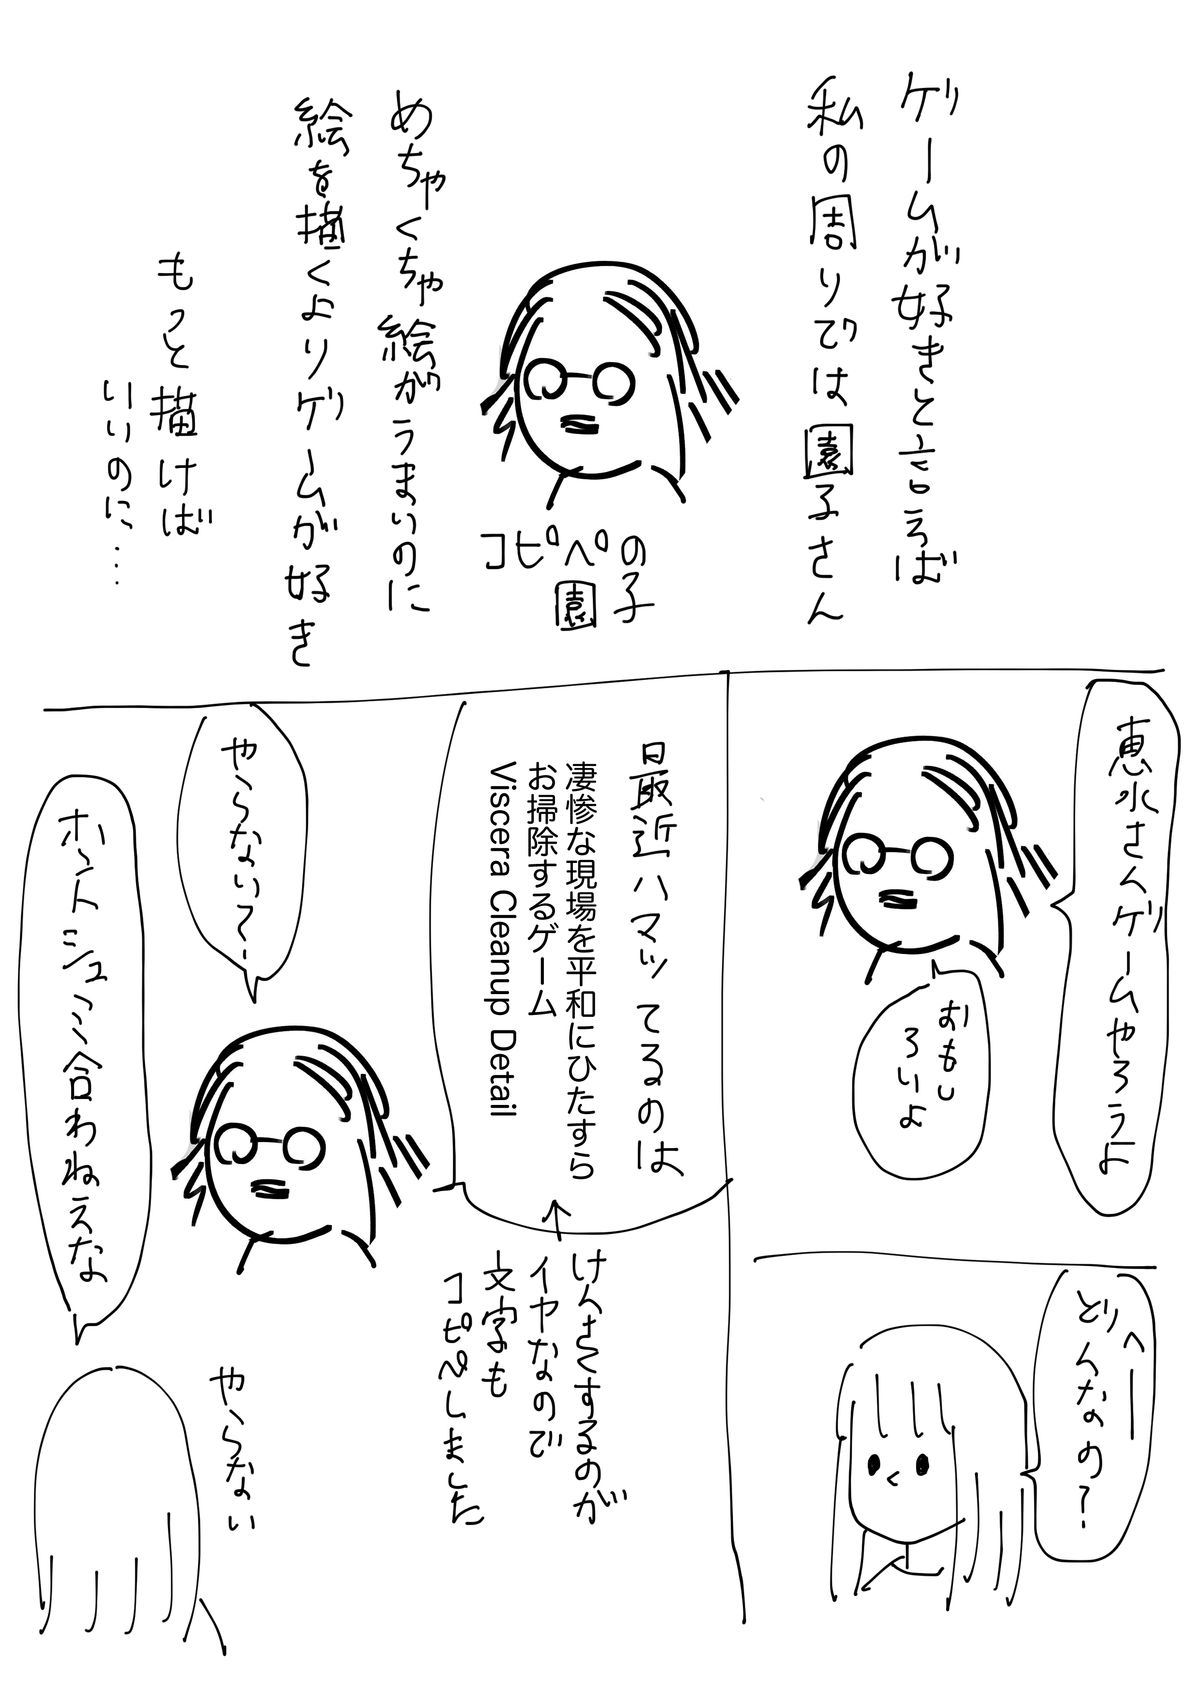 ゲームが好きと言えば
私の周りでは園子さん
コピペの
園子
めちゃくちゃ絵がうまいのに
絵を描くよりゲームが好き
もっと描けば
いいのに…
恵水さんゲームやろうよ
おもし
ろいよ
へー
どんなの?
最近ハマッてるのは
凄惨な現場を平和にひたすら
お掃除するゲーム
Viscera Cleanup Detail
↑
けんさくするのが
イヤなので
文字も
コピペしました
やらないで
ホントシュミ合わねえな
やらない